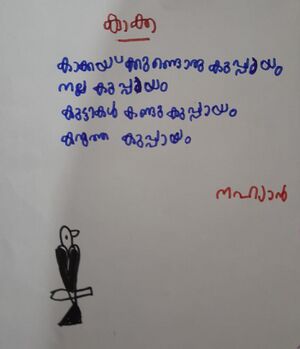 കാക്ക
കാക്കയ്ക്കുണ്ടൊരു കുപ്പായം
നല്ല കുപ്പായം
കുട്ടികൾ കണ്ടു കുപ്പായം
കറുത്ത കുപ്പായം
നഹ്യാൻ